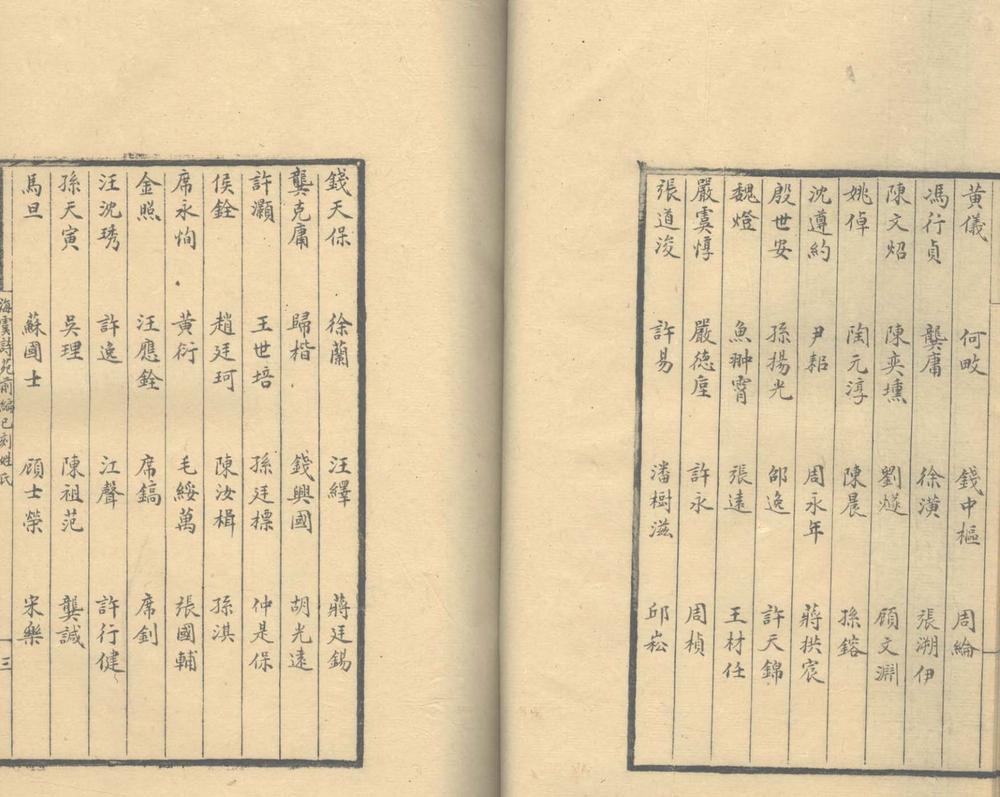 黃儀 何畋 錢中樞 周綸
馮行貞 龔庸 徐漢 張溯伊
陳文炤 陳奕壎 劉燧 顧文淵
姚倬 陶元淳 陳晨 孫鎔
沈遵約 尹耜 周永年 蔣拱宸
殷世安 孫揚光 邵逸 許天錦
魏燈 魚翀霄 張遠 王材任
嚴虞惇 嚴德垕 許永 周楨
張道浚 許易 潘樹滋 邱崧
錢天保 徐蘭 汪繹 蔣廷錫
龔克庸 歸楷 錢興國 胡光遠
許灝 王世培 孫廷標 仲是保
侯銓 趙廷珂 陳汝楫 孫淇
席永恂 黃衍 毛綬萬 張國輔
金照 汪應銓 席鎬 席釗
汪沈琇 許逸 江聲 許行健
孫天寅 吳理 陳祖范 龔誠
馬旦 蘇國士 顧士榮 宋樂
海虞詩苑前編已刻姓氏 三